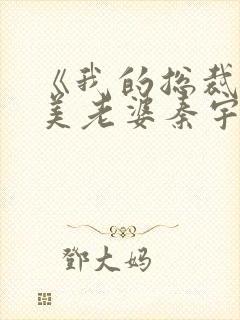 《我的总裁
美老婆秦宇
鄧大妈